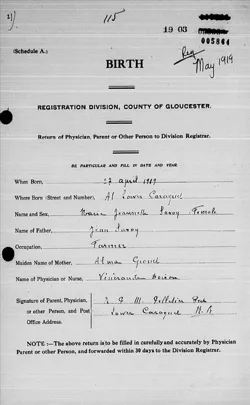 115
19 03
005864
(Schedule A.)
May 1919
BIRTH
REGISTRATION DIVISION, COUNTY OF GLOUCESTER.
Return of Physician, Parent or Other Person to Division Registrar.
BE PARTICULAR AND FILL IN DATE AND YEAR.
When Born, 27 April 1919
Where Born (Street and Number), At Lower Caraquet
Name and Sex, Marie Jeannette Savoy Female
Name of Father, Jean Savoy
Occupation, Farmer
Maiden Name of Mother, Alma
Name of Physician or Nurse,
Signature of Parent, Physician,
or other Person, and Post Lower Caraquet N.B.
Office Address.
NOTE :—The above return is to be filled in carefully and accurately by Physician
Parent or other Person, and forwarded within 30 days to the Division Registrar.